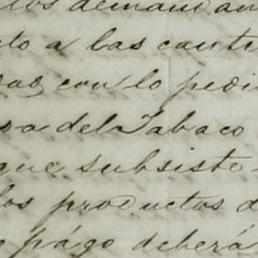 los demandan
to a las canti
das con lo pedi
sa del Tabaco
que subsiste
los productos d
págo deberá